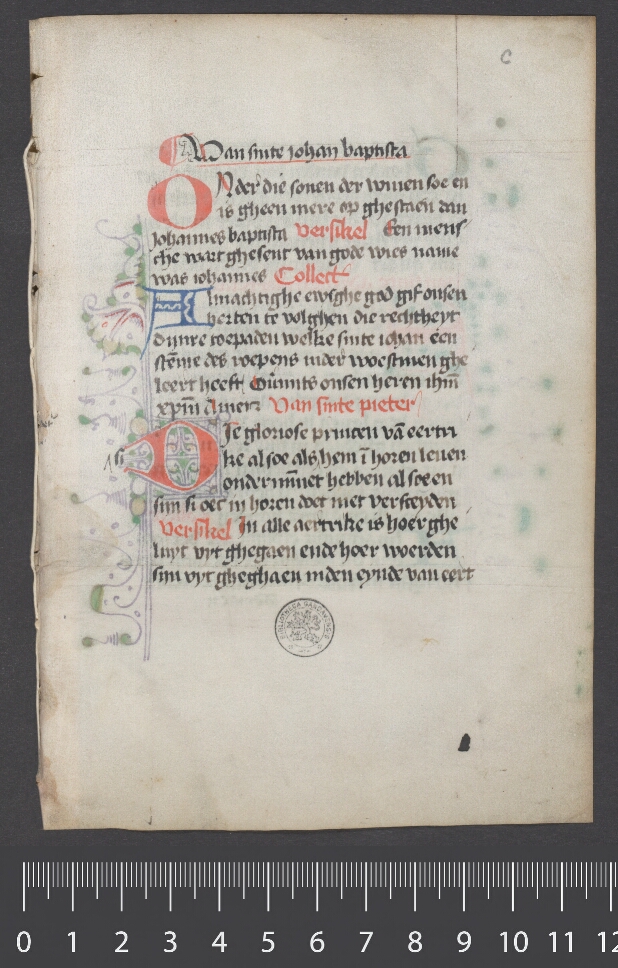 C
Van sinte iohan baptista
ONder die sonen der wiuen soe en
is gheen mere op ghestaen dan
Johannes baptista Versikel Een mens
che wart ghesent van gode wies name
was iohannes Collect
Almachtighe ewighe god gif onsen
herten te volghen die rechtheyt
dijnre toepaden welke sinte iohan een
stēme des roepens inder woestinen ghe
leert heeft Ouermits onsen heren ihm̄
xpm̄ Amen Van sinte pieter
DIe gloriose princen vā eertri
ke al soe als hem ī horen leuen
onder minnet hebben al soe en
sijn si oec in horen doet niet versceyden
Versikel In alle aertrike is hoer ghe
luyt vyt ghegaen ende hoer woerden
sijn vyt gheghaen inden eynde van eert
BIBLIOTHECA GANDAVENSIS
0 1 2 3 4 5 6 7 8 9 10 11 12